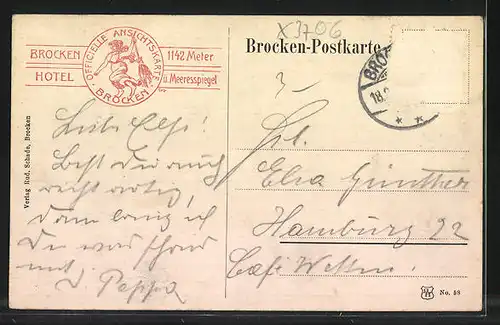 X3706
BROCKEN
HOTEL
OFFICIELLE ANSICHTSKARTE
BROCKEN
1142 Meter
ü. Meeresspiegel
Brocken-Postkarte
BROC
18.
Verlag Rud. Schade, Brocken
Liebe Else!
Bist Du auch
recht artig,
dann bring ich
Du was schönes
mit. Pappa
Frl.
Elsa Günther
Hamburg 22
Café
No. 58